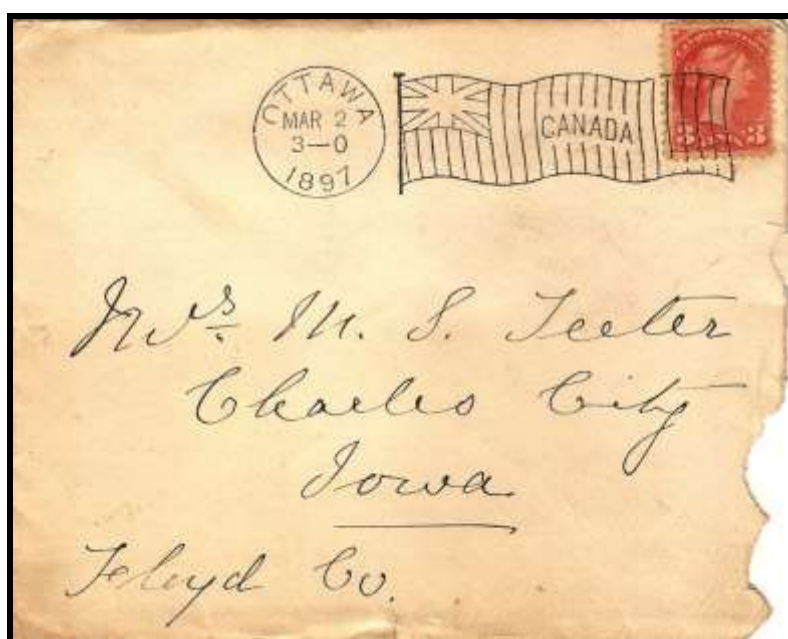 OTTAWA
MAR 2
3—0
1897
CANADA
3 CENTS 3
Mrs. M. S. Teeter
Charles City
Iowa
Floyd Co.